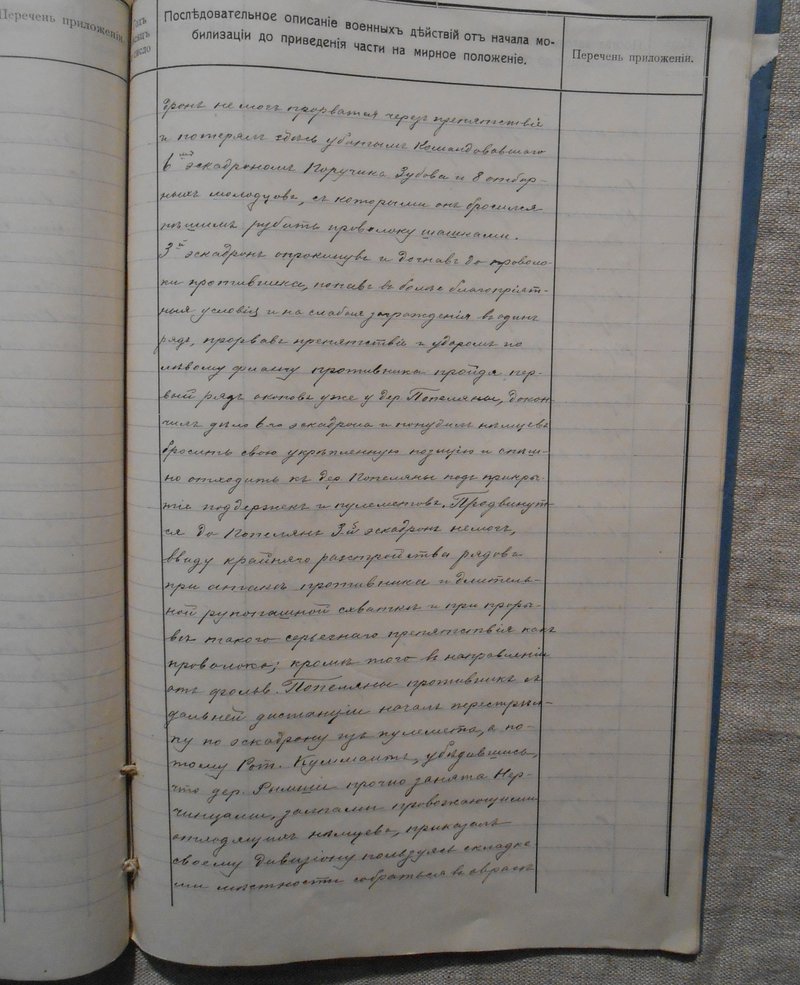 Перечень приложеній.
Послѣдовательное описаніе военныхъ дѣйствій отъ начала мо-
билизаціи до приведенія части на мирное положеніе.
Перечень приложеній.
дронъ не могъ прорваться черезъ препятствія
и потерялъ здѣсь убитымъ Командовавшаго
6мъ эскадрономъ Поручика Зубова и 8 отбор-
ныхъ молодцовъ, съ которыми онъ бросился
пѣшимъ рубить проволоку шашками.
3й эскадронъ опрокинувъ и догнавъ до проволо-
ки противника, попавъ въ болѣе благопріят-
ныя условія и на слабыя загражденія въ одинъ
рядъ, прорвавъ препятствія и ударомъ по
лѣвому флангу противника пройдя пер-
вый рядъ окоповъ уже у дер. Попеляны, докон-
чилъ дѣло 6го эскадрона и понудилъ нѣмцевъ
бросить свою укрѣпленную позицію и спѣш-
но отходить къ дер. Попеляны подъ прикры-
тіе поддержекъ и пулеметовъ. Продвинут-
ся до Попелянъ 3й эскадронъ не могъ,
ввиду крайняго разстройства рядовъ
при атакѣ противника и длитель-
ной рукопашной схватки и при проры-
вѣ такого серьезнаго препятствія какъ
проволока; кромѣ того въ направленіи
отъ фольв. Попеляны противникъ съ
дальней дистанціи началъ перестрѣл-
ку по эскадрону изъ пулемета, а по-
тому Рот. убѣдившись,
что дер. прочно занята Нер-
чинцами, залпами провожающими
отходящихъ нѣмцевъ, приказалъ
своему дивизіону пользуясь складка-
ми мѣстности собраться въ оврагѣ